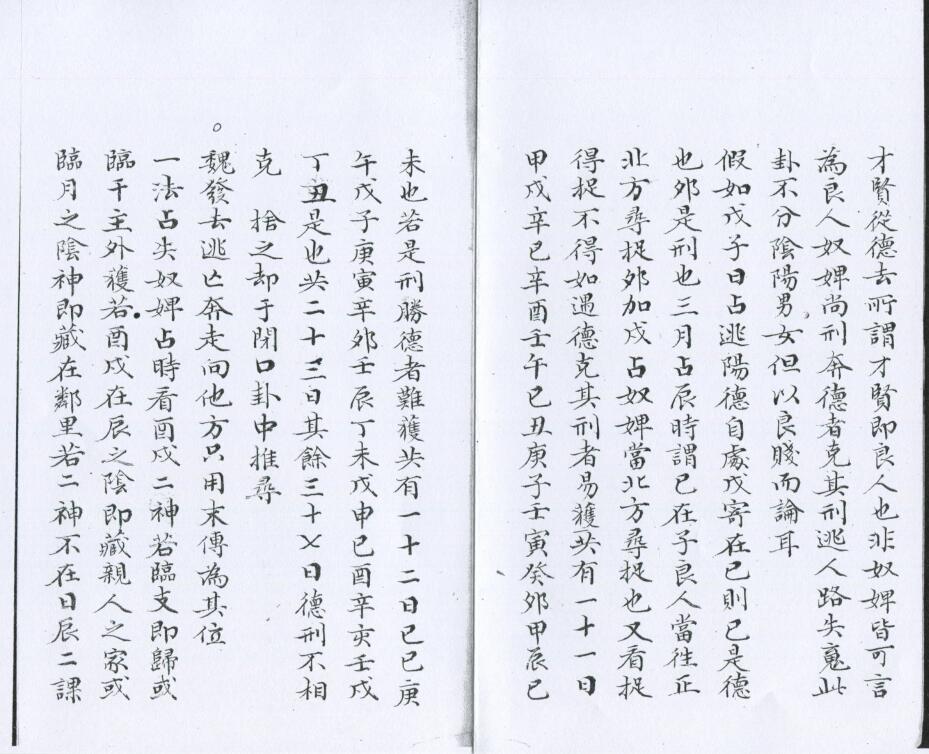 才賢從德去所謂才賢即良人也非奴婢皆可言
為良人奴婢尚刑奔德者克其刑逃人路失寃此
卦不分陰陽男女但以良賤而論耳
假如戊子日占逃陽德自處戊寄在巳則巳是德
也夘是刑也三月占辰時謂巳在子良人當往正
北方尋捉夘加戌占奴婢當北方尋捉也又看捉
得捉不得如過德克其刑者易獲共有一十一日
甲戌辛巳辛酉壬午己丑庚子壬寅癸夘甲辰己
未也若是刑勝德者難獲共有一十二日己巳庚
午戊子庚寅辛夘壬辰丁未戊申己酉辛亥壬戌
丁丑是也共二十三日其餘三十乂日德刑不相
克　捨之却于閉口卦中推尋
○魏發去逃亡奔走向他方只用末傳為其位
一法占失奴婢占時看酉戌二神若臨支即歸或
臨干主外獲若酉戌在辰之陰即藏親人之家或
臨月之陰神即藏在鄰里若二神不在日辰二課